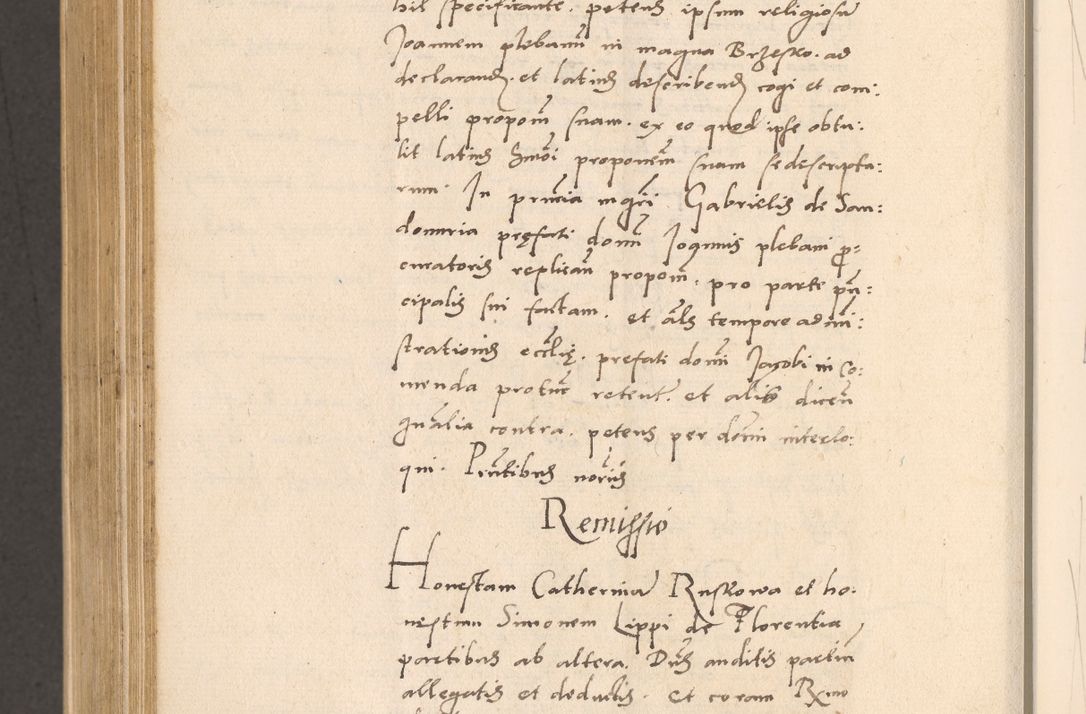 bil specificante. petens ipsum religiosũ
Joannem plebanũ in magna Brzesko. ad
declarand. et latius describend cogi et com:
pelli proponẽ suam. ex eo quod ipse obtu:
lit latius Smõi proponem̃ suam se descriptu:
rum. In pñcia mgri Gabrielis de San:
domiria prefati domĩ Joannis plebani p:
curatoris replicañ proponẽ. pro parte pñ:
cipalis sui factam. et als tempore admi:
strationis eccliẹ. prefati domĩ Jacobi in co:
menda protũc retent. et aliis diceñ
gñalia contra. petens per domĩ interlo:
qui. Pñtibus
Remissio
Honestam Catherinã Ruskowa et ho.
nestum Simonem Lippi de Florentia
partibus ab altera. Dñs auditis partiũ
allegatis et deductis. et coram Rmo